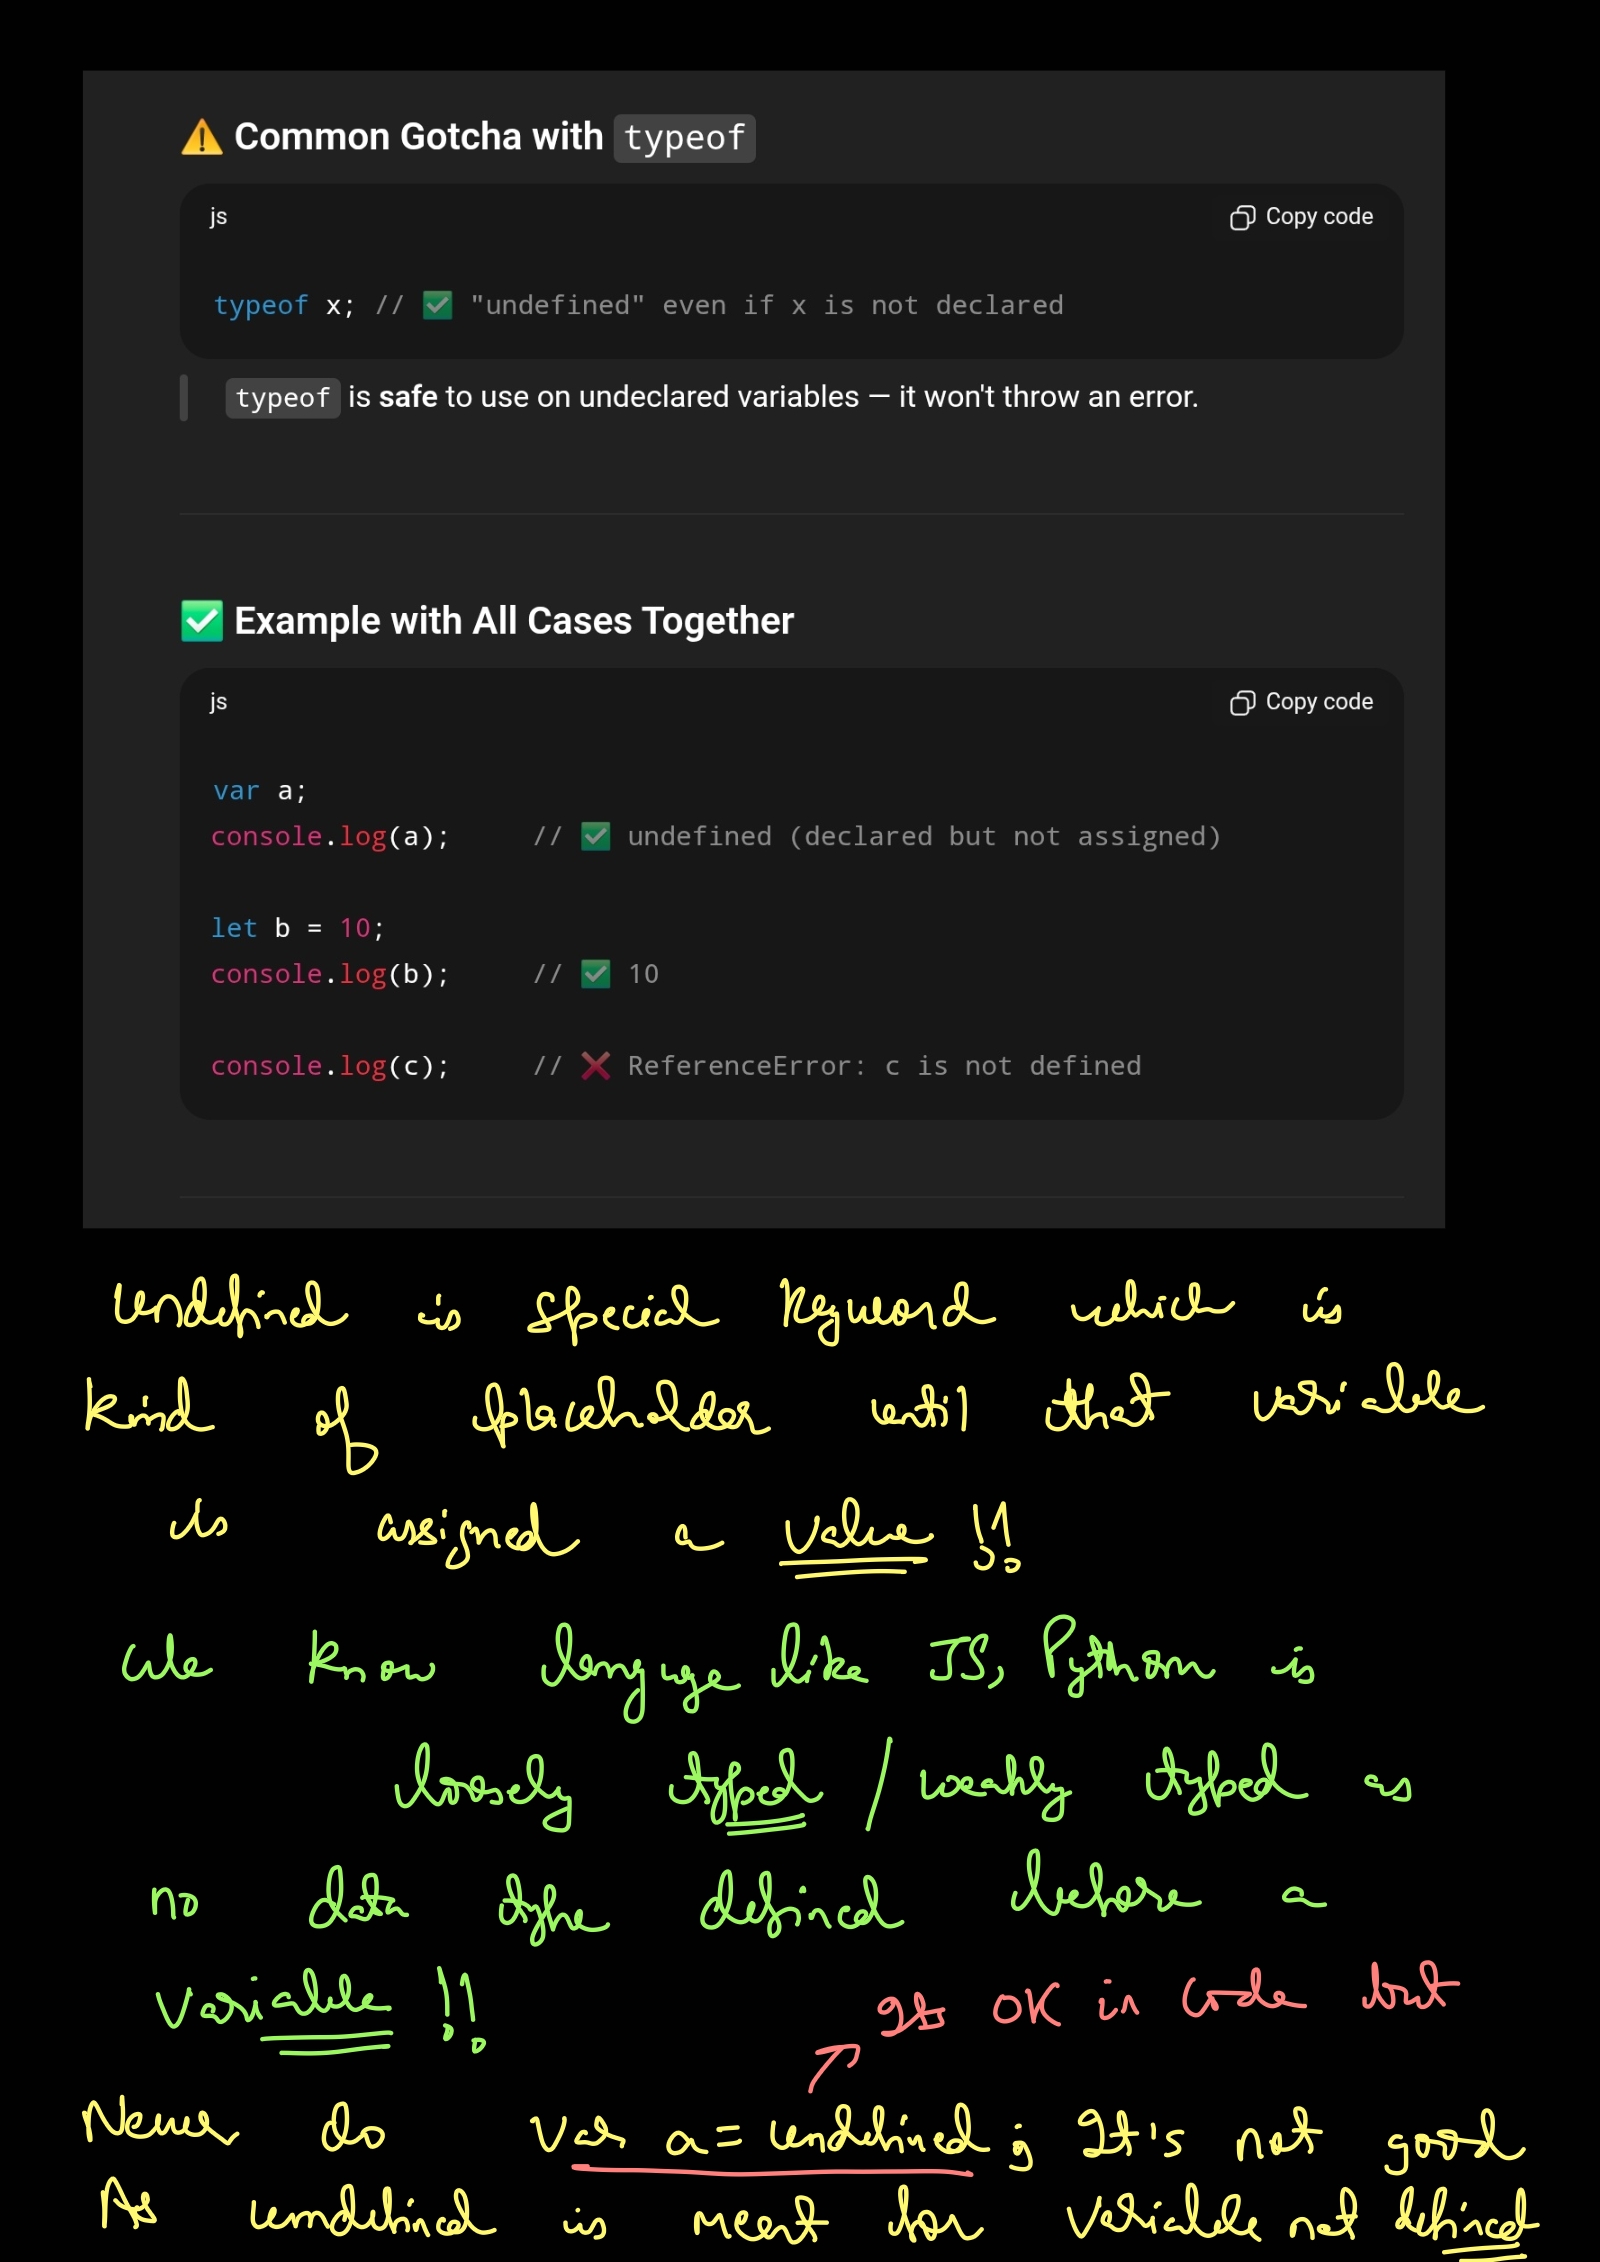 ⚠️ Common Gotcha with typeof
js
Copy code
typeof x; // ✅ "undefined" even if x is not declared
typeof is safe to use on undeclared variables — it won't throw an error.
✅ Example with All Cases Together
js
Copy code
var a;
console.log(a); // ✅ undefined (declared but not assigned)
let b = 10;
console.log(b); // ✅ 10
console.log(c); // ❌ ReferenceError: c is not defined
Undefined is special keyword which is
kind of placeholder until that variable
is assigned a value !!
We know languge like JS, Python is
loosely typed / weakly typed as
no data type defined before a
variable !!
Its OK in code but
Never do var a = undefined ; It's not good
As undefined is meant for variable not defined